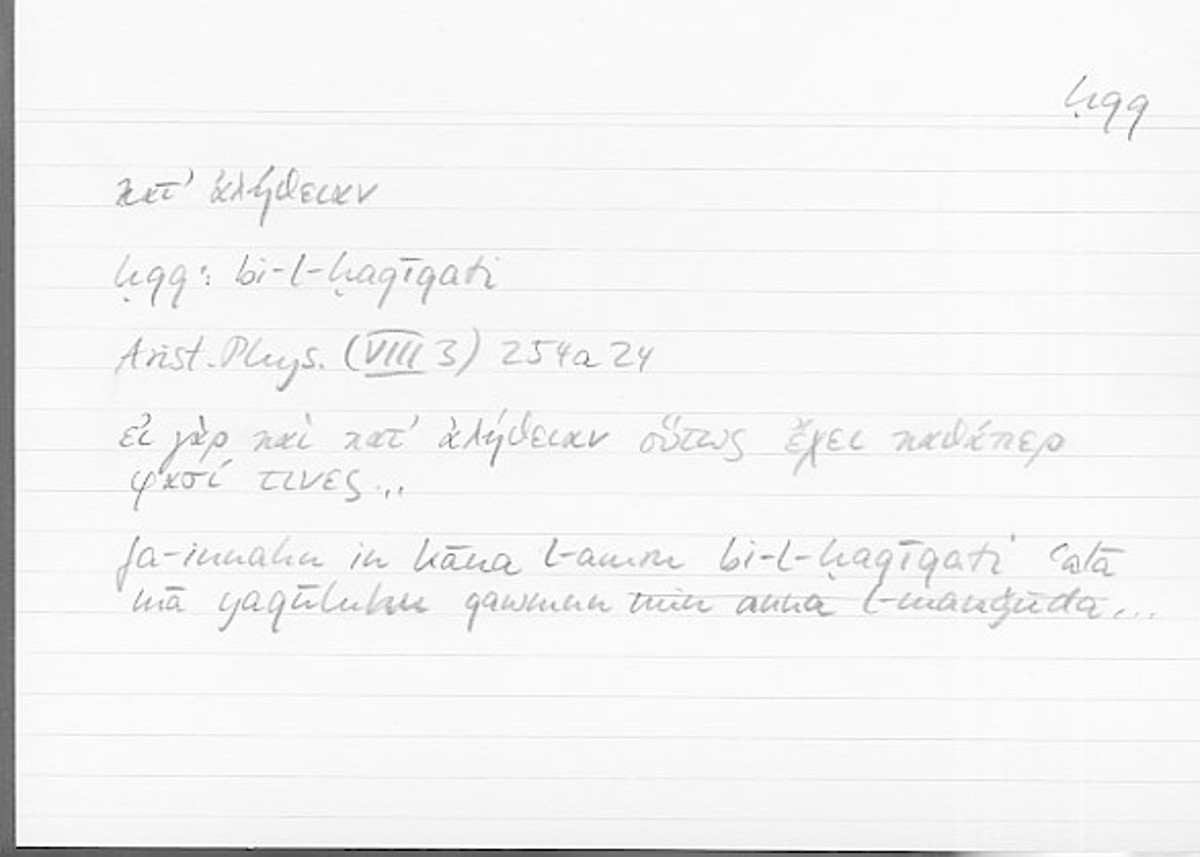 ḥqq
κατ' ἀλήθειαν
ḥqq: bi-l-ḥaqīqati
Arist. Phys. (VIII 3) 254a24
εἰ γὰρ καὶ κατ' ἀλήθειαν οὕτως ἔχει καθάπερ
φασί τινες...
fa-innahu in kāna l-amru bi-l-ḥaqīqati ʿalā
mā yaqūluhu qawmun min anna l-mawǧūda...